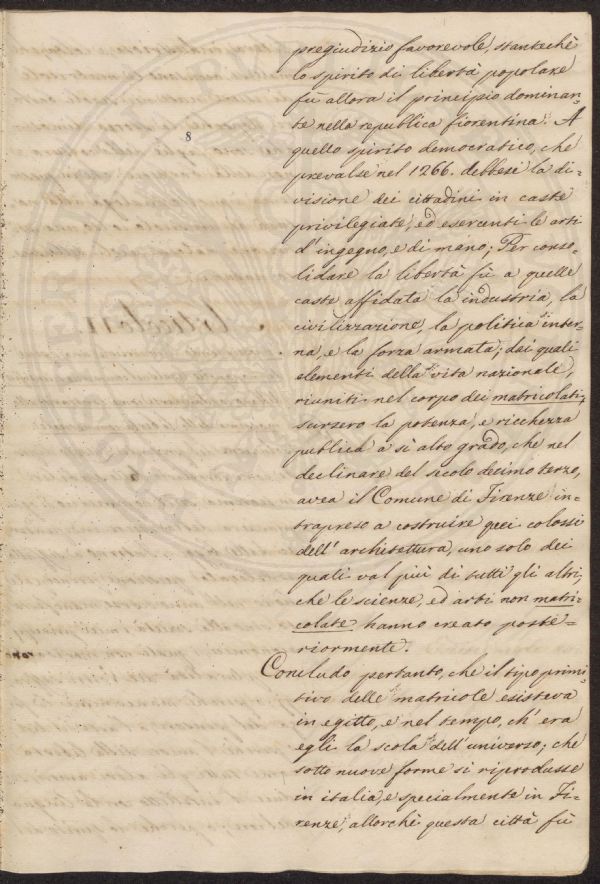 pregiudizio favorevole, stantechè
lo spirito di libertà popolare
fù allora il principio dominan-
te nella republica fiorentina. A
8
quello spirito democratico, che
prevalse nel 1266. debbesi la di-
visione dei cittadini in caste
privilegiate, ed esercenti le arti
d'ingegno, e di mano; Per conso-
lidare la libertà fù a quelle
caste affidata la industria, la
civilizzazione, la politica inter-
na, e la forza armata; dei quali
elementi della vita nazionale,
riuniti nel corpo dei matricolati,
sursero la potenza, e ricchezza
publica a sì alto grado, che nel
declinare del secolo decimo terzo,
avea il Comune di Firenze in-
trapreso a costruire quei colossi
dell'architettura, uno solo dei
quali val più di tutti gli altri,
che le scienze, ed arti non matri-
colate hanno creato poste-
riormente.
Concludo pertanto, che il tipo primi-
tivo delle matricole esisteva
in egitto, e nel tempo, ch'era
egli la scola dell'universo; che
sotto nuove forme si riprodusse
in italia, e specialmente in Fi-
renze, allorchè questa città fù